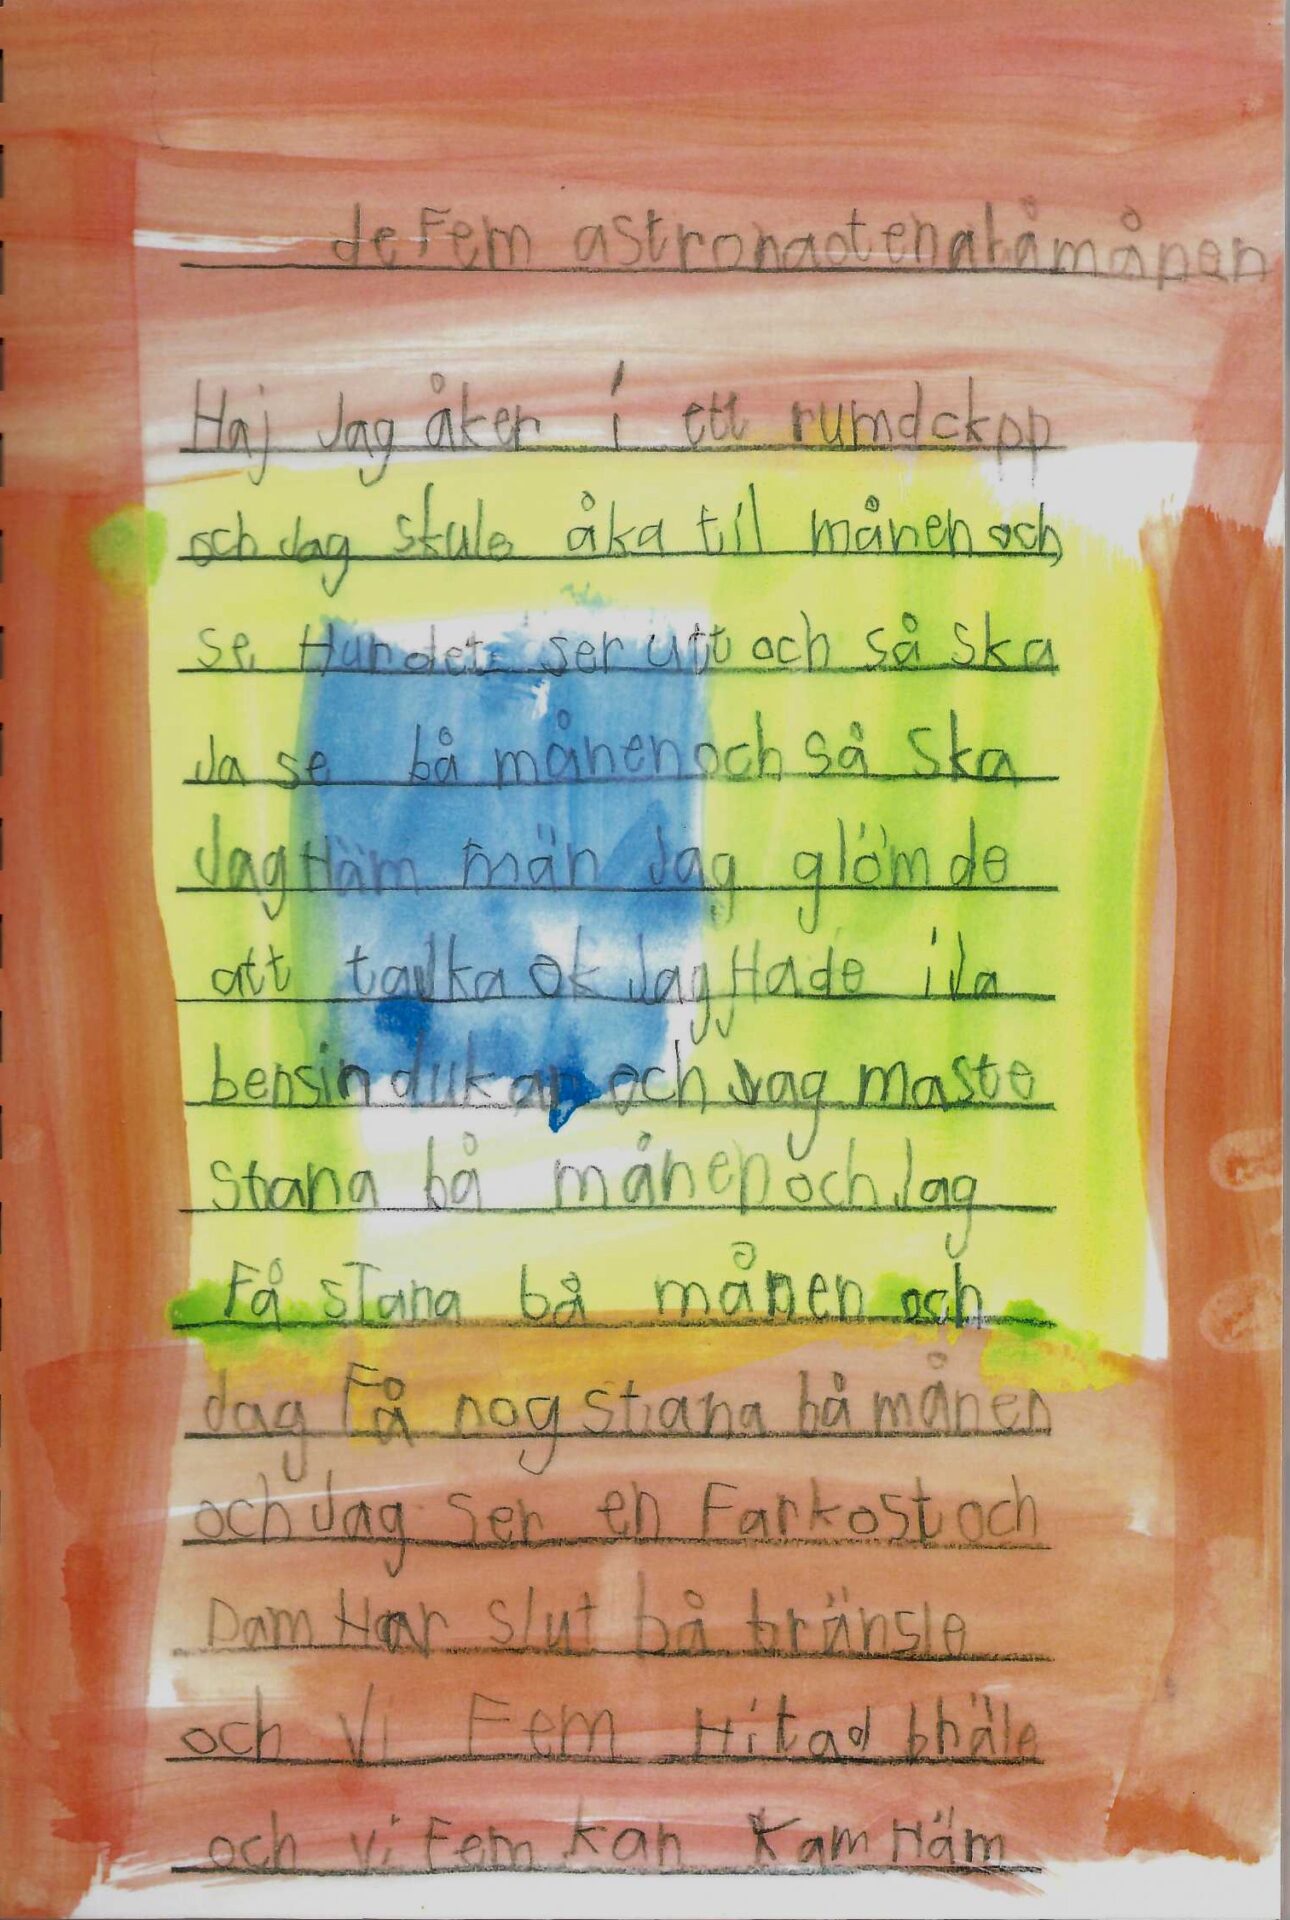 de Fem astronaotena båmånen
Haj Jag åker i ett rumdckpp
och Jag skule åka til månen och
se Hur det ser utt och så ska
Ja se bå månen och så ska
Jag Häm män Jag glömde
att tavka ok Jag Hade i Ja
bensin dukan och Jag maste
stana bå månen och Jag
Få stana bå månen och
Jag Få nog stana bå månen
och Jag ser en Farkost och
Dam Har slut bå bränsle
och Vi Fem Hitad bhäle
och Vi Fem kan Kam Häm